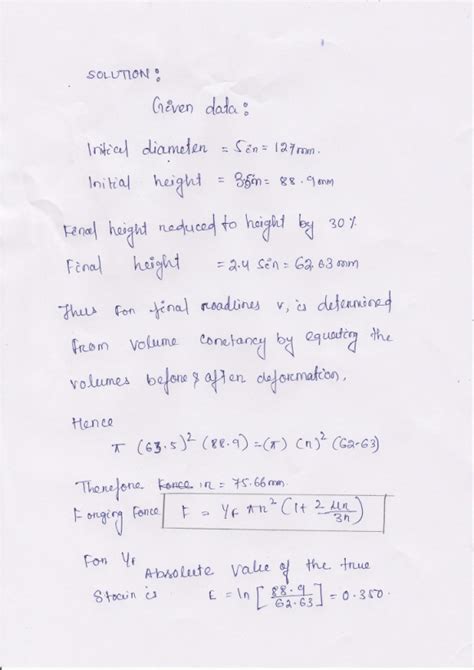 SOLUTION:
Given data:
Initial diameter = 5in = 127mm.
Initial height = 3.5in = 88.9mm
Final height reduced to height by 30%
Final height = 2.45in = 62.63mm
Thus for final roadlines r, is determined
from volume constancy by equating the
volumes before & after deformation.
Hence
π (63.5)² (88.9) = (π) (r)² (62.63)
Therefore Force r = 75.66mm.
Forging Force F = Yf πr² (1 + 2 μr / 3h)
For Yf
Absolute value of the true
Strain is E = ln [88.9 / 62.63] = 0.350.